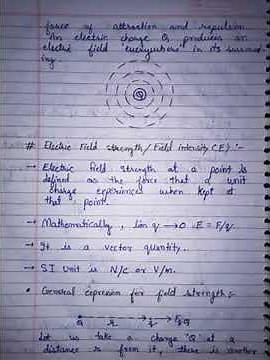 force of attraction and repulsion
An electric charge Q produces an
electric field everywhere in its surround
ing.
Q
# Electric Field strength / Field intensity (E) :-
→ Electric field strength at a point is
defined as the force that a unit
charge experiences when kept at
that point.
→ Mathematically, lim q → 0 E = F/q.
→ It is a vector quantity.
→ SI Unit is N/C or V/m.
• General expression for field strength :-
Q r
Let us take a charge 'Q' at a
distance r from it, there is another